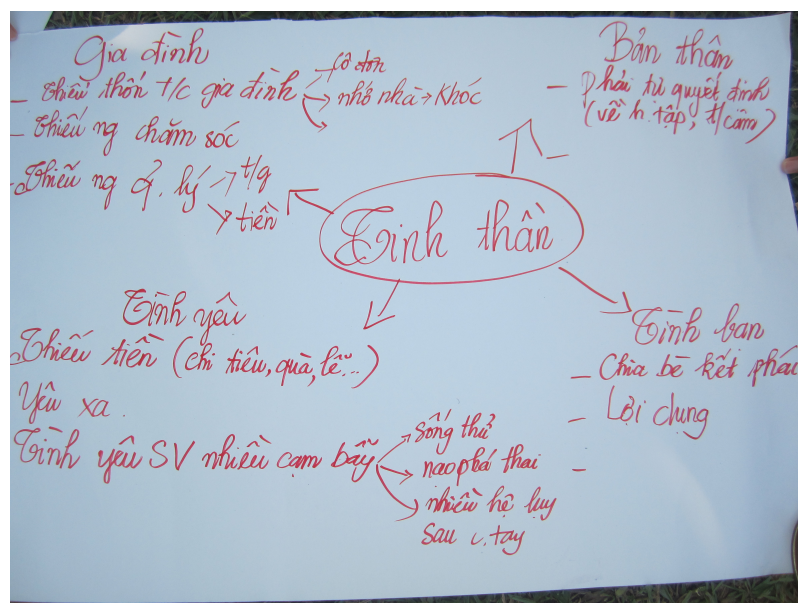 Gia đình
- Thiếu thốn t/c gia đình
Cô đơn
nhớ nhà → Khóc
- Thiếu ng chăm sóc
- Thiếu ng q. lý
t/g
tiền
Bản thân
- Phải tự quyết định
(về h. tập, t/cảm)
Tinh thần
Tình yêu
- Thiếu tiền (chi tiêu, quà, lễ...)
Yêu xa.
Tình yêu SV nhiều cạm bẫy
Sống thử
nạo phá thai
nhiều hệ lụy
sau c. tay
Tình bạn
- Chia bè kết phái
- Lợi dụng
-